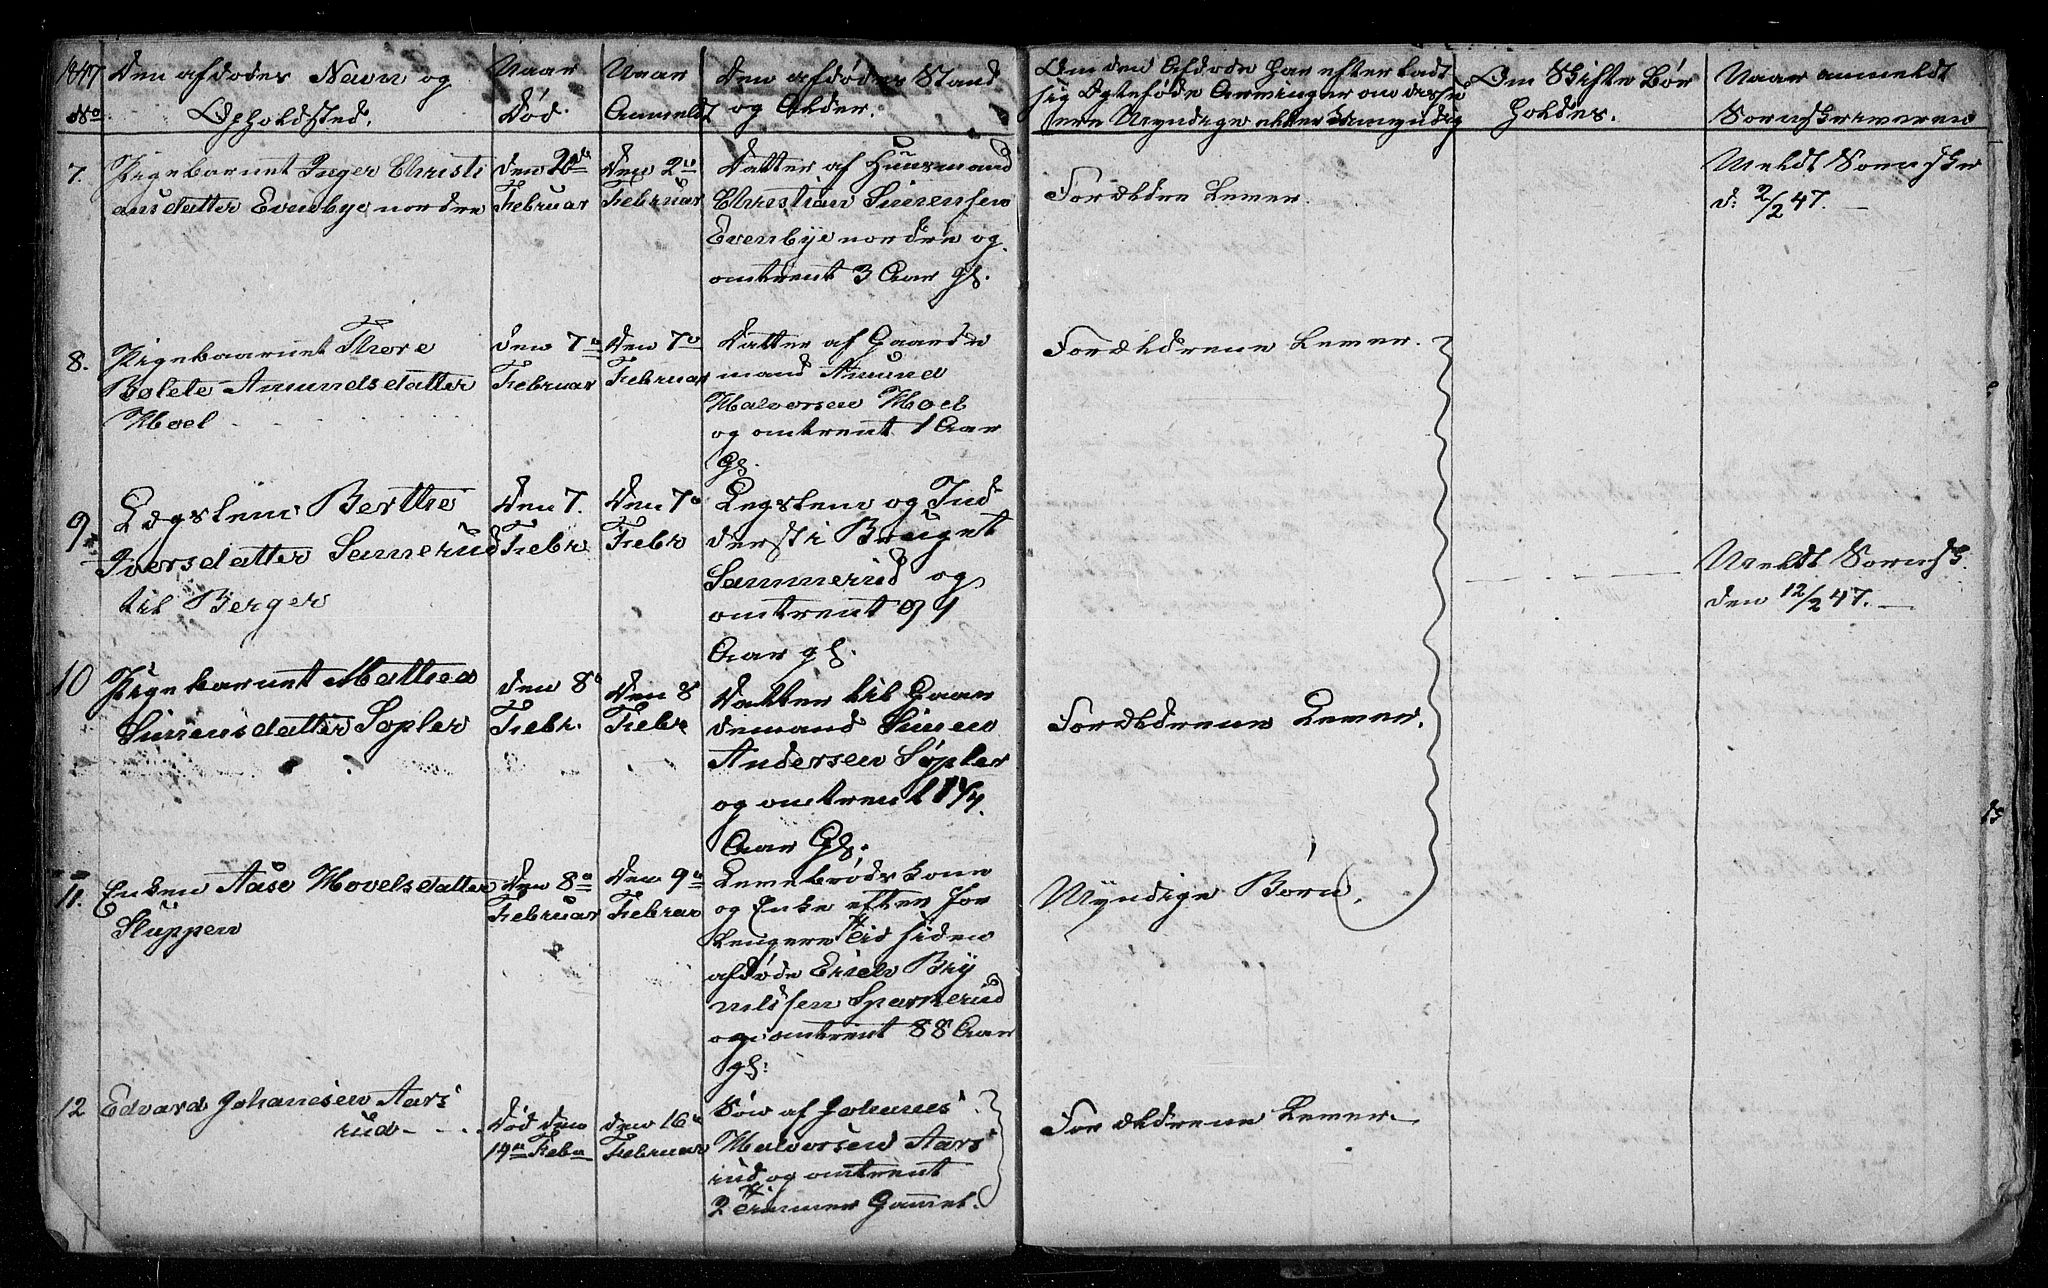 1847 Den afdødes Navn og
No Opholdsted.
Naar
Død.
Naar
Anmeldt
Den afdødes Stand
og Alder.
Om den Afdøde har efterladt
sig Ægtefødte Arvinger om disse
ere Myndige eller Umyndig
Om Skifte bør
holdes.
Naar anmeldt
Sorenskriveren
7. Pigebarnet Inger Christi
ansdatter Evenbye nordre
den
Februar
den 2de
Februar
Datter af Huusmand
Christian Simensen
Evenbye nordre og
omtrent 3 Aar gl.
Forældre Lever.
Meldt Sorenskr
d. 2/2 47.
8. Pigebarnet Thore
Bolete Amundsdatter
Moel
den 7de
Februar
Den 7de
Februar
Datter af Gaard
mand Amund
Halvorsen Moel
og omtrent 1 Aar
Gl.
Forældrene Lever.
9. Lægslem Berthe
Iversdatter Sannerud
til Berger
Den 7.
Febr
Den 7de
Febr
Legslem og Ind
derst i
Sannerud og
omtrent 91
Aar gl.
Meldt Sorensk.
den 12/2 47.
10 Pigebarnet Mathea
Simensdatter Sopler
den 8de
Febr.
Den 8
Febr
Datter til Gaar
demand Simen
Andersen Sopler
og omtrent 1 1/4
Aar Gl.
Forældrene Lever.
11. Enken Aase Hovelsdatter
Sluppen
Den 8de
Februar
Den 9de
Februar
Levebrødskone
og Enke efter for
lengere Tid siden
afdøde Erich Bry
nildsen Sparkerud
og omtrent 88 Aar
gl.
Myndige Børn.
12 Edvard Johanesen Aars
rud
Død den
14de Feb
den 16de
Februar
Søn af Johannes
Halvorsen Aars
rud og omtrent
2 Timmer Gammel.
Forældrene Lever.